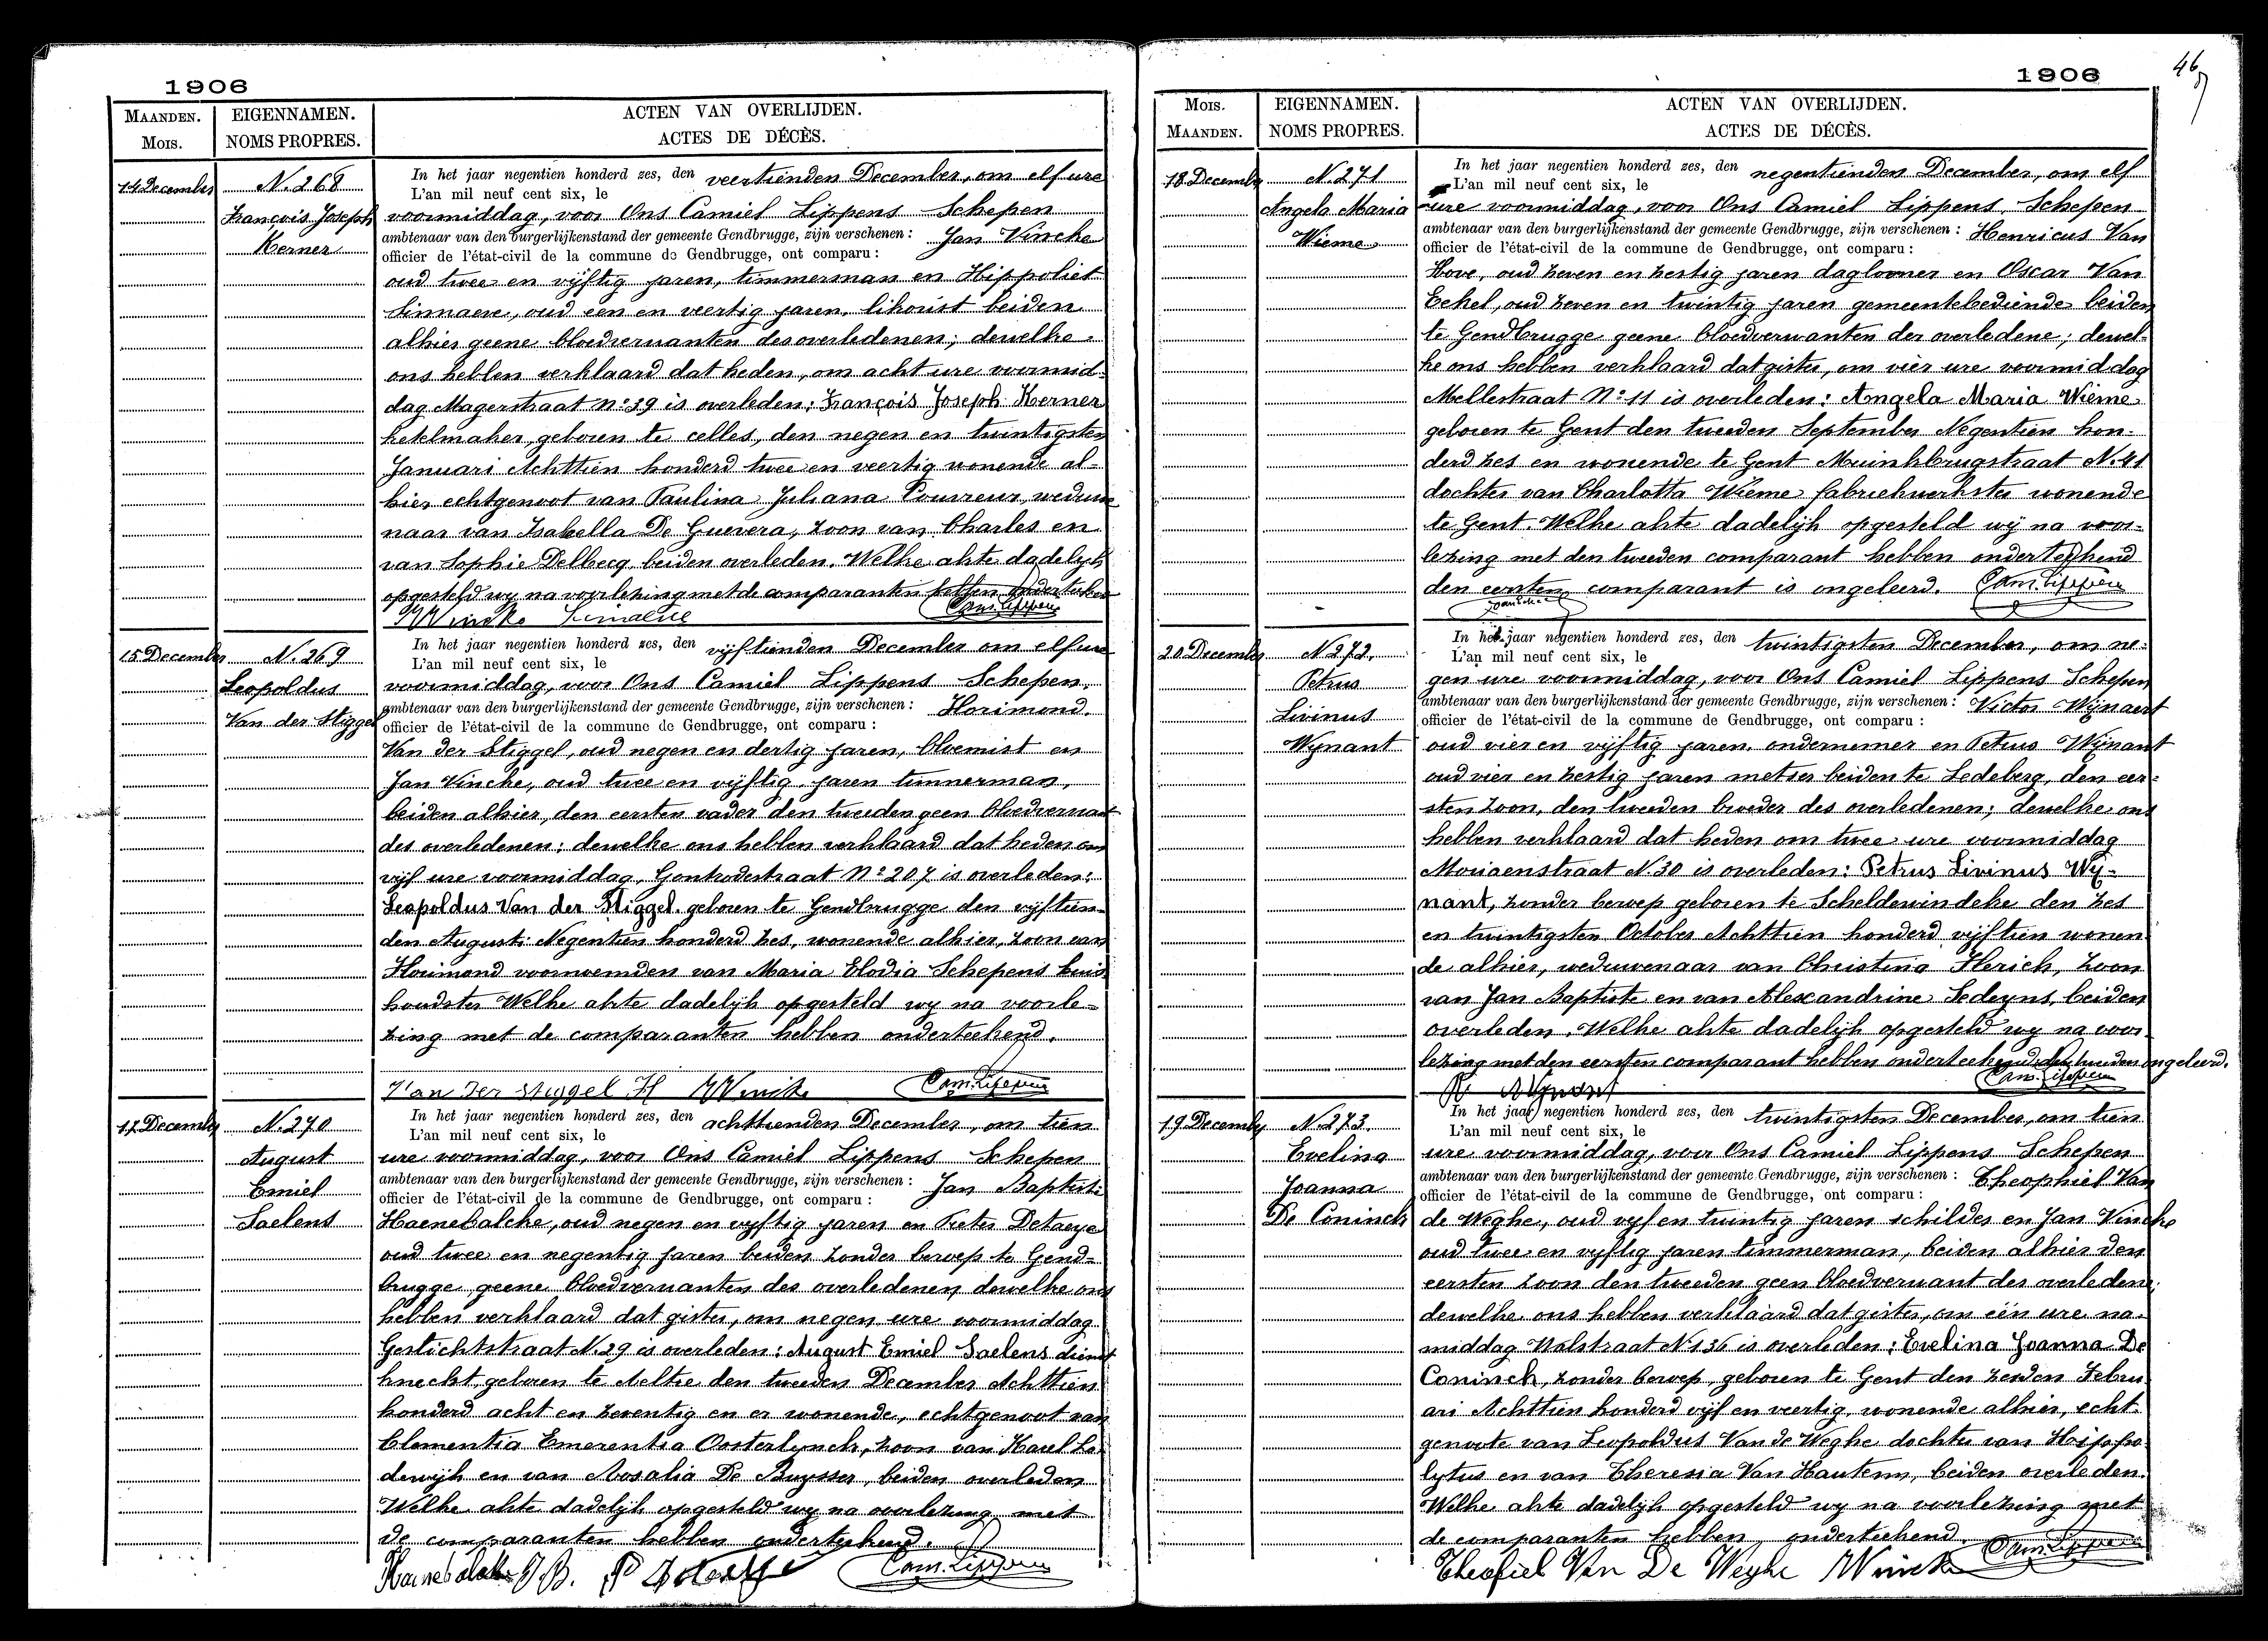 1906
MAANDEN.
Mois.
EIGENNAMEN.
NOMS PROPRES.
ACTEN VAN OVERLIJDEN.
ACTES DE DÉCÈS.
14 December
N. 268
François Joseph
Kerner
In het jaar negentien honderd zes, den veertienden December, om elf ure
L'an mil neuf cent six, le
voormiddag, voor Ons Camiel Lippens Schepen
ambtenaar van den burgerlijkenstand der gemeente Gendbrugge, zijn verschenen : Jan Vincke
officier de l'état-civil de la commune de Gendbrugge, ont comparu :
oud twee en vijftig jaren, timmerman en Hippoliet
Sinnaeve, oud een en veertig jaren, likourist beiden
alhier geene bloedverwanten des overledenen; dewelke
ons hebben verklaard dat heden, om acht ure voormid-
dag Magerstraat No 39 is overleden: François Joseph Kerner
ketelmaker, geboren te celles, den negen en twintigsten
Januari Achttien honderd twee en veertig wonende al-
hier echtgenoot van Paulina Juliana Couvreur, weduwe
naar van Isabella De Guevera, zoon van Charles en
van Sophie Delbecq beiden overleden. Welke akte dadelijk
opgesteld wy na voorlezing met de comparanten hebben onderteekend
J Vincke Sinnaeve Cam. Lippens
15 December
N. 269
Leopoldus
Van der Stiggel
In het jaar negentien honderd zes, den vijftienden December om elf ure
L'an mil neuf cent six, le
voormiddag, voor Ons Camiel Lippens Schepen
ambtenaar van den burgerlijkenstand der gemeente Gendbrugge, zijn verschenen : Florimond
officier de l'état-civil de la commune de Gendbrugge, ont comparu :
Van der Stiggel, oud negen en dertig jaren, bloemist en
Jan Vincke, oud twee en vijftig jaren timmerman,
beiden alhier, den eersten vader den tweeden geen bloedverwant
des overledenen; dewelke ons hebben verklaard dat heden om
vijf ure voormiddag, Gontrodestraat No 207 is overleden:
Leopoldus Van der Stiggel geboren te Gendbrugge den vijftien-
den Augusti Negentien honderd zes, wonende alhier, zoon van
Florimond voornoemden van Maria Elodia Schepens huis
houdster Welke akte dadelijk opgesteld wy na voorle-
zing met de comparanten hebben onderteekend.
Van der stiggel H J Vincke Cam. Lippens
17 December
N. 270
August
Emiel
Saelens
In het jaar negentien honderd zes, den achttienden December, om tien
L'an mil neuf cent six, le
ure voormiddag, voor Ons Camiel Lippens Schepen
ambtenaar van den burgerlijkenstand der gemeente Gendbrugge, zijn verschenen : Jan Baptiste
officier de l'état-civil de la commune de Gendbrugge, ont comparu :
Haenebalcke, oud negen en vyftig jaren en Pieter Detaeye
oud twee en negentig jaren beiden zonder beroep te Gend-
brugge geene bloedverwanten des overledenen, dewelke ons
hebben verklaard dat gister, om negen ure voormiddag
Gestichtstraat N. 29 is overleden: August Emiel Saelens dienst
knecht, geboren te Aeltre den tweeden December Achttien
honderd acht en zeventig en er wonende, echtgenoot van
Clementia Emerentia Oosterlynck, zoon van Karel Lo-
dewijk en van Rosalia De Buysser, beiden overleden
Welke akte dadelijk opgesteld wy na voorlezing met
de comparanten hebben onderteekend.
Haenebalcke J.B. P Detaeye Cam. Lippens
1906
46
Mois.
MAANDEN.
EIGENNAMEN.
NOMS PROPRES.
ACTEN VAN OVERLIJDEN.
ACTES DE DÉCÈS.
18 December
N. 271
Angela Maria
Wieme
In het jaar negentien honderd zes, den negentienden December, om elf
L'an mil neuf cent six, le
ure voormiddag, voor Ons Camiel Lippens, Schepen
ambtenaar van den burgerlijkenstand der gemeente Gendbrugge, zijn verschenen : Henricus Van
officier de l'état-civil de la commune de Gendbrugge, ont comparu :
Hove, oud zeven en zestig jaren daglooner en Oscar Van
Eekel, oud zeven en twintig jaren gemeentebediende beiden
te Gendbrugge geene bloedverwanten der overledene; dewel-
ke ons hebben verklaard dat gister, om vier ure voormiddag
Mellestraat No 11 is overleden: Angela Maria Wieme
geboren te Gent den tweeden September Negentien hon-
derd zes en wonende te Gent Muinkbrugstraat N. 41
dochter van Charlotta Wieme fabriekwerkster wonende
te Gent. Welke akte dadelijk opgesteld wij na voor-
lezing met den tweeden comparant hebben onderteekend
den eersten comparant is ongeleerd. Cam. Lippens
20 December
N. 272.
Petrus
Livinus
Wynant
In het jaar negentien honderd zes, den twintigsten December, om ne-
L'an mil neuf cent six, le
gen ure voormiddag, voor Ons Camiel Lippens Schepen
ambtenaar van den burgerlijkenstand der gemeente Gendbrugge, zijn verschenen : Victor Wijnaert
officier de l'état-civil de la commune de Gendbrugge, ont comparu :
oud vier en vijftig jaren, ondernemer en Petrus Wijnant
oud vier en zestig jaren metser beiden te Ledeberg, den eer-
sten zoon, den tweeden broeder des overledenen; dewelke ons
hebben verklaard dat heden om twee ure voormiddag
Moriaenstraat N. 30 is overleden: Petrus Livinus Wij-
nant, zonder beroep geboren te Scheldewindeke den zes
en twintigsten October Achttien honderd vijftien wonen
de alhier, weduwenaar van Christina Flerick, zoon
van Jan Baptiste en van Alexandrine Sedeyns, beiden
overleden. Welke akte dadelijk opgesteld wy na voor
lezing met den eersten comparant hebben onderteekend den tweeden ongeleerd.
Wijnant Cam. Lippens
19 December
N. 273.
Evelina
Joanna
De Coninck
In het jaar negentien honderd zes, den twintigsten December, om tien
L'an mil neuf cent six, le
ure voormiddag, voor Ons Camiel Lippens Schepen
ambtenaar van den burgerlijkenstand der gemeente Gendbrugge, zijn verschenen : Theophiel Van
officier de l'état-civil de la commune de Gendbrugge, ont comparu :
de Weghe, oud vyf en twintig jaren schilder en Jan Vincke
oud twee en vyftig jaren timmerman, beiden alhier den
eersten zoon den tweeden geen bloedverwant der overledene;
dewelke ons hebben verklaard dat gister, om één ure na-
middag Walstraat N. 136 is overleden: Evelina Joanna De
Coninck, zonder beroep, geboren te Gent den zesden Febru
ari Achttien honderd vijf en veertig, wonende alhier, echt-
genoote van Leopoldus Van de Weghe dochter van Hippo-
lytus en van Theresia Van Hautem, beiden overleden.
Welke akte dadelijk opgesteld wy na voorlezing met
de comparanten hebben onderteekend.
Theofiel Van De Weghe J Vincke Cam. Lippens